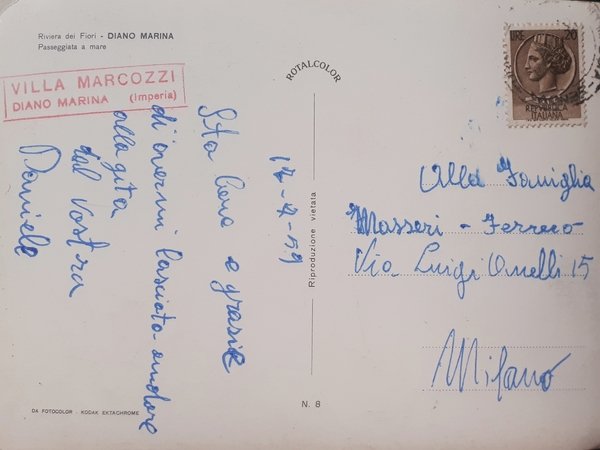 Riviera dei Fiori - DIANO MARINA
Passeggiata a mare
VILLA MARCOZZI
DIANO MARINA (Imperia)
Sto bene e grazie
di avermi lasciata andare
alla gita
dal Vostra
Daniele
ROTALCOLOR
Riproduzione vietata
N. 8
DA FOTOCOLOR - KODAK EKTACHROME
LIRE 20
REPUBBLICA
ITALIANA
Alla Famiglia
Masseri - Ferrero
Via Luigi 15
Milano